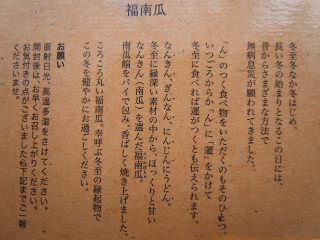 福南瓜
冬至冬なか冬はじめ。
長い冬の始まりとなるこの日には、
昔からさまざまな方法で
無病息災が願われてきました。
「ん」のつく食べ物をいただくのもそのひとつ。
いつごろからか「ん」に「運」をかけて
冬至に食べれば運がつくとも伝えられます。
なんきん、ぎんなん、にんじんにうどん。
冬至に縁深い素材の中から、ほっくりと甘い
なんきん（南瓜）を選んだ福南瓜。
南瓜餡をパイで包み、香ばしく焼き上げました。
ころころ丸い福南瓜、幸呼ぶ冬至の縁起物で
この冬を健やかにお過ごしください。
お願い
直射日光、高温多湿をさけてください。
開封後は、お早くお召し上がりください。
お気付きの点がございましたら下記までご一報
くださいませ。